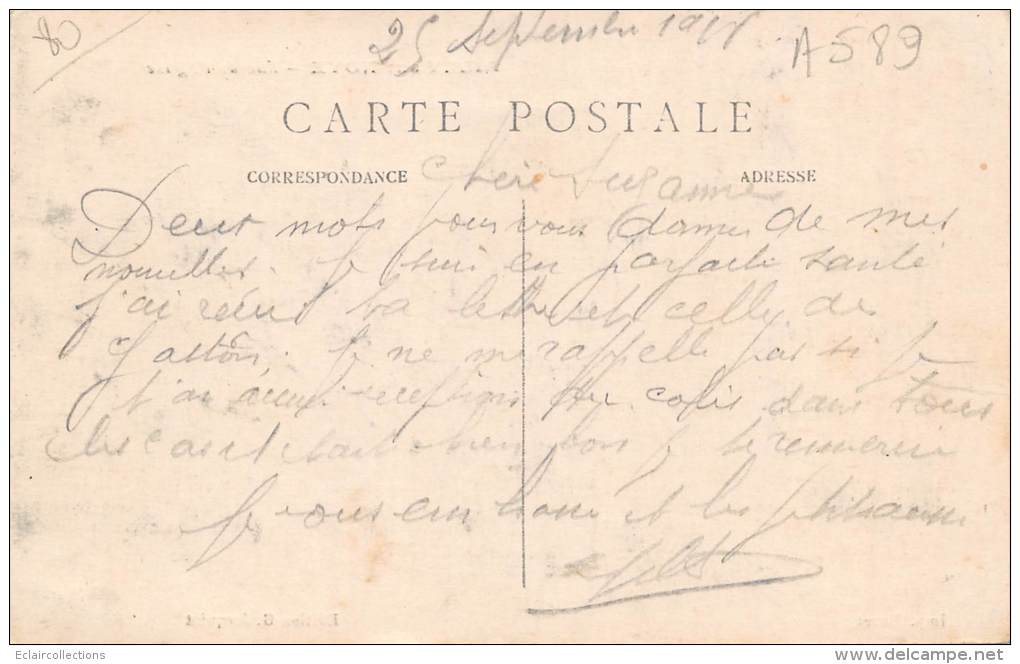 80
25 Septembre
A589
CARTE POSTALE
CORRESPONDANCE
ADRESSE
Chère Suzanne
Deux mots pour vous donner de mes
nouvelles. Je suis en parfaite santé
j'ai reçu ta lettre et celle de
Gaston. Je ne me rappelle pas si je
t'ai accusé réception du colis dans tous
les cas il était bien bon je te remercie
Je vous embrasse et les petits aussi
Eclaircollections
www.delcampe.net